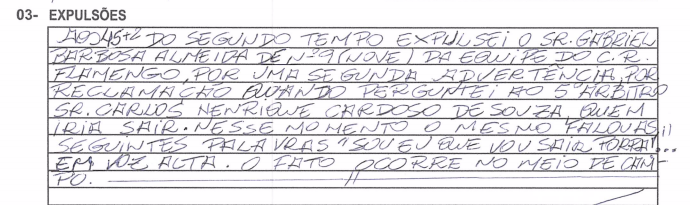 03- EXPULSÕES
AOS 45+2 DO SEGUNDO TEMPO EXPULSEI O SR. GABRIEL
BARBOSA ALMEIDA DE Nº 9 (NOVE) DA EQUIPE DO C.R.
FLAMENGO, POR UMA SEGUNDA ADVERTÊNCIA, POR
RECLAMAÇÃO QUANDO PERGUNTEI AO 5º ARBITRO
SR. CARLOS HENRIQUE CARDOSO DE SOUZA, QUEM
IRIA SAIR. NESSE MOMENTO O MESMO FALOU AS
SEGUINTES PALAVRAS "SOU EU QUE VOU SAIR PORRA"...
EM VOZ ALTA. O FATO OCORRE NO MEIO DE CAM-
PO.